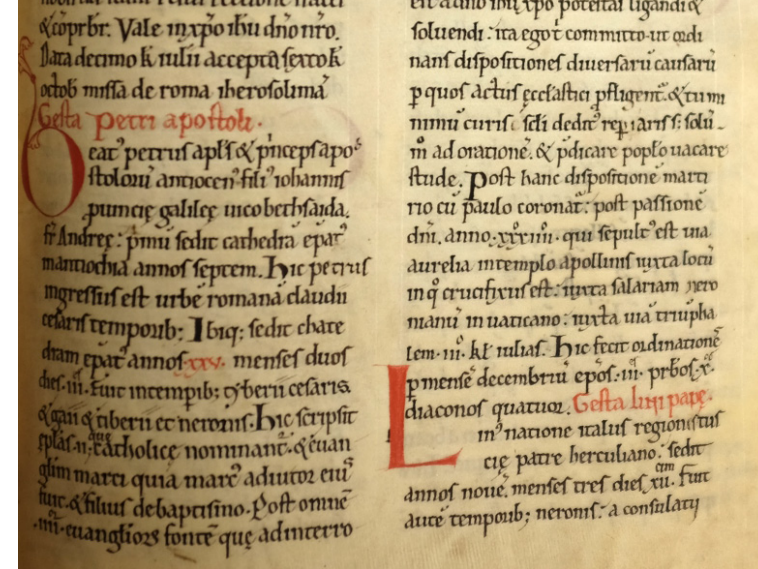 &cōprƀr. Vale inxp̄o ihū dn̄o nr̄o.
Data decimo k̄ iulii accepta sexto k̄
octob missa de roma iherosolima
Gesta Petri apostoli.
Beat᷒ petrus apl̄s & p̄nceps apo
stoloru᷒ antiocen᷒ fili᷒ iohannis
puincię galileę uico bethsaida.
fr̄ Andreę: p̄mū sedit cathedrā epat᷒
inantiochia annos septem. Hic petrus
ingressus est urbē romanā claudii
cesaris temporib; Ibiq; sedit cathe
dram epat᷒ annos .xxv. menses duos
dies .iii. Fuit intemporib; tyberii cesaris
& gaii & tiberii et neronis. Hic scripsit
eplās .ii. que catholicę nominant᷒. & euan
glīum marci quia marc᷒ auditor ei᷒
fuit. & filius debaptismo. Post omnē
.iiii. euangliorꝝ fontē quę adinterro
soluendi: ita ego t̄ committo ut ordi
nans dispositiones diuersarū causarū
p quos act᷒ ęccl̄astici pfligent᷒. & tu mi
ad oratione. & p̄dicare popl̄o uacare
stude. Post hanc dispositionē marti
rio cū paulo coronat᷒: post passionē
dn̄i. anno .xxxiiii. qui sepult᷒ est uia
aurelia intemplo apollinis iuxta locū
in q̊ crucifixus est: iuxta salariam nero
nianū in uaticano: iuxta uiā triūpha
lem .iii. kl̄ iulias. Hic fecit ordinationē
p mensē decembriū ep̄os .iii. prƀos .x.
diaconos quatuor. Gesta lini papę.
Lin᷒ natione italus regionis tus
cię patre herculiano: sedit
annos nouē. menses tres dies .xii. Fuit
autē temporib; neronis: a consulatu